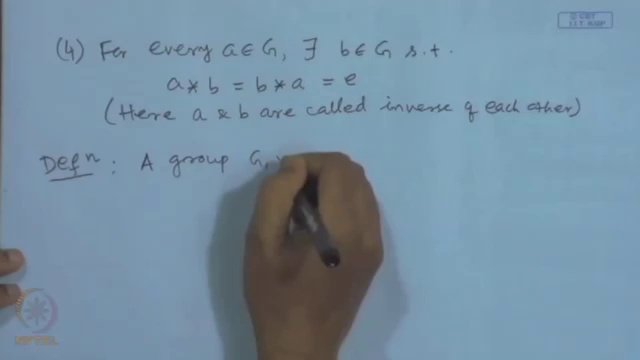 © CET
I.I.T. KGP
(4) For every a ∈ G, ∃ b ∈ G s.t.
a * b = b * a = e
(Here a & b are called inverse of each other)
Defⁿ : A group G
NPTEL